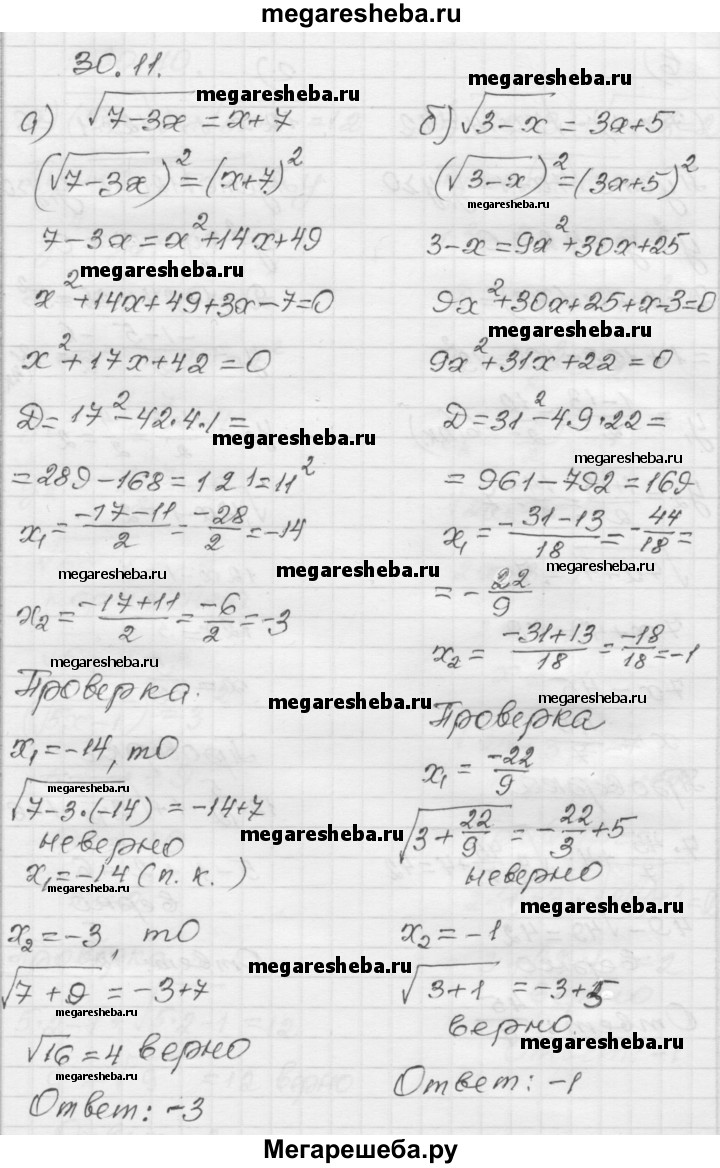 megaresheba.ru
30.11.
megaresheba.ru
megaresheba.ru
а) √7-3x = x+7
(√7-3x)² = (x+7)²
7-3x = x²+14x+49
megaresheba.ru
x²+14x+49+3x-7=0
x²+17x+42=0
D = 17²-42·4·1 =
megaresheba.ru
= 289-168 = 121 = 11²
x₁ = (-17-11)/2 = (-28)/2 = -14
megaresheba.ru
megaresheba.ru
x₂ = (-17+11)/2 = (-6)/2 = -3
megaresheba.ru
Проверка.
megaresheba.ru
x₁ = -14, то
megaresheba.ru
√7-3·(-14) = -14+7
megaresheba.ru
неверно
x₁ = -14 (п. к.)
megaresheba.ru
x₂ = -3, то
megaresheba.ru
√7+9 = -3+7
megaresheba.ru
√16 = 4 верно
megaresheba.ru
Ответ: -3
б) √3-x = 3x+5
(√3-x)² = (3x+5)²
megaresheba.ru
3-x = 9x²+30x+25
9x²+30x+25+x-3=0
megaresheba.ru
9x²+31x+22=0
D = 31²-4·9·22 =
megaresheba.ru
= 961-792 = 169
x₁ = (-31-13)/18 = -44/18 =
= -22/9
x₂ = (-31+13)/18 = (-18)/18 = -1
megaresheba.ru
Проверка
x₁ = (-22)/9
√3+22/9 = -22/3+5
неверно
megaresheba.ru
x₂ = -1
√3+1 = -3+5
верно.
megaresheba.ru
Ответ: -1
Мегарешеба.ру